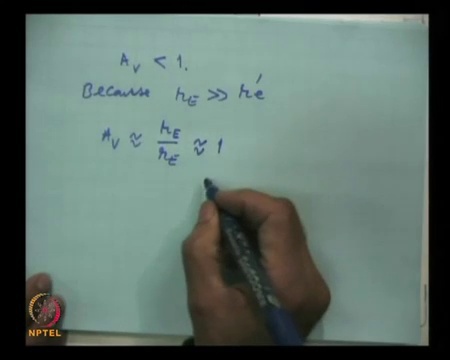 A_V < 1.
Because r_E >> r'e
A_V ≈ r_E / r_E ≈ 1
NPTEL